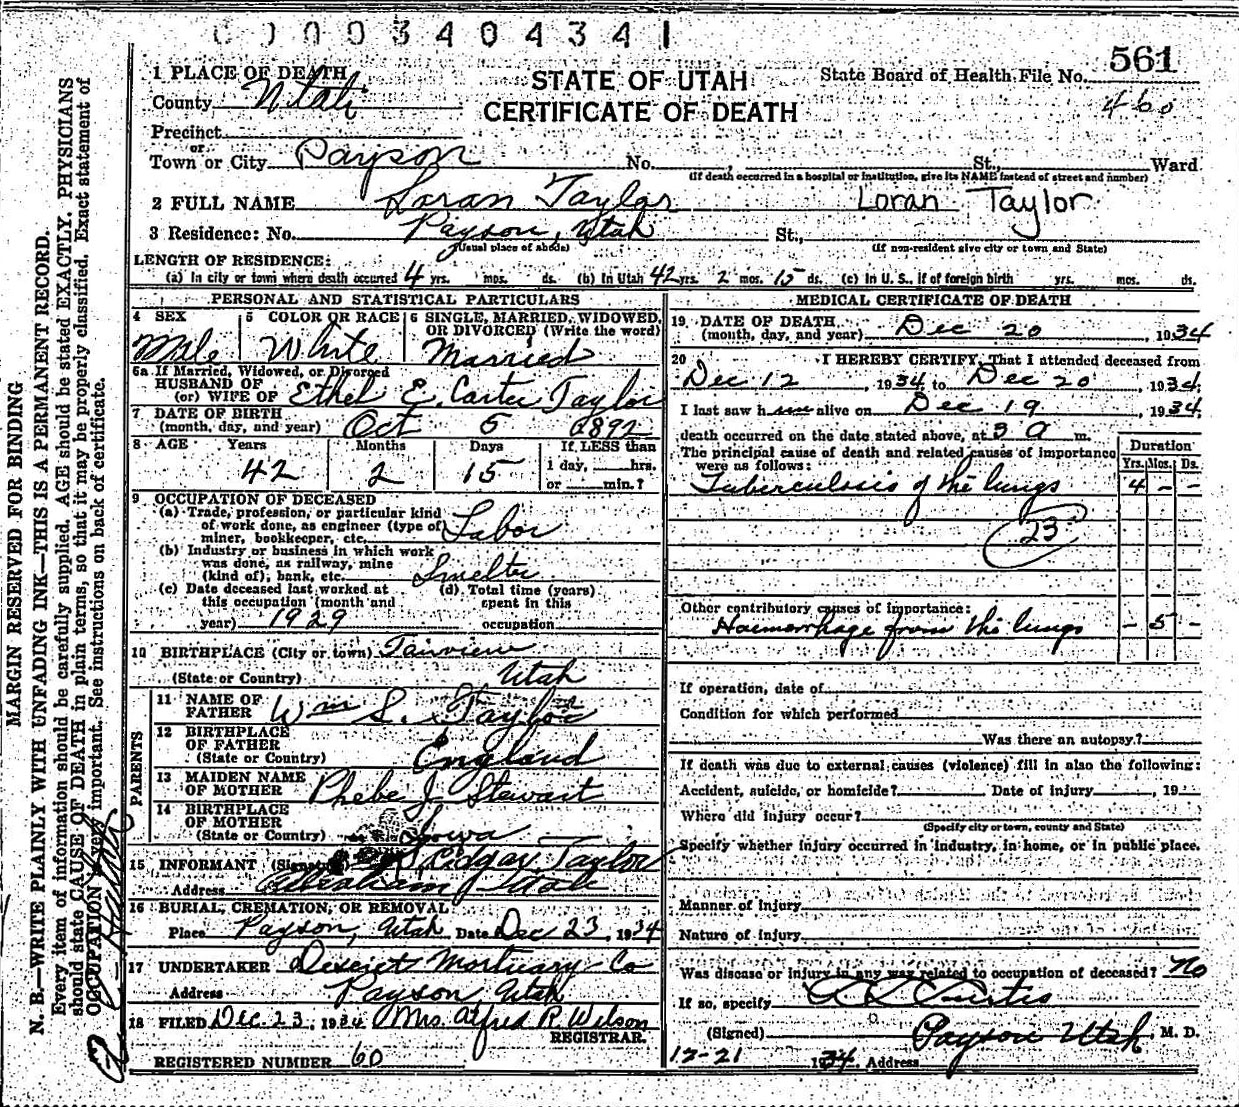 0003404341
561
1 PLACE OF DEATH
STATE OF UTAH
State Board of Health File No.
County Utah
CERTIFICATE OF DEATH
460
Precinct
or
Town or City Payson No. , St., Ward
(If death occurred in a hospital or institution, give its NAME instead of street and number)
2 FULL NAME Loran Taylor Loran Taylor
3 Residence: No. Payson, Utah St.,
(Usual place of abode) (If non-resident give city or town and State)
LENGTH OF RESIDENCE:
(a) In city or town where death occurred 4 yrs. mos. ds. (b) In Utah 42 yrs. 2 mos. 15 ds. (c) In U. S., if of foreign birth yrs. mos. ds.
PERSONAL AND STATISTICAL PARTICULARS
4 SEX 5 COLOR OR RACE 6 SINGLE, MARRIED, WIDOWED,
OR DIVORCED (Write the word)
Male White Married
6a If Married, Widowed, or Divorced
HUSBAND OF
(or) WIFE OF Ethel E. Carter Taylor
7 DATE OF BIRTH
(month, day, and year) Oct 5 1892
8 AGE Years Months Days If LESS than
42 2 15 1 day, hrs.
or min.?
9 OCCUPATION OF DECEASED
(a) Trade, profession, or particular kind
of work done, as engineer (type of)
miner, bookkeeper, etc. Labor
(b) Industry or business in which work
was done, as railway, mine
(kind of), bank, etc. Smelter
(c) Date deceased last worked at (d) Total time (years)
this occupation (month and spent in this
year) 1929 occupation
10 BIRTHPLACE (City or town) Fairview
(State or Country) Utah
PARENTS
11 NAME OF
FATHER Wm S. Taylor
12 BIRTHPLACE
OF FATHER
(State or Country) England
13 MAIDEN NAME
OF MOTHER Phebe J Stewart
14 BIRTHPLACE
OF MOTHER
(State or Country) Iowa
15 INFORMANT (Signature) Edgar Taylor
Address Abraham Utah
16 BURIAL, CREMATION, OR REMOVAL
Place Payson, Utah Date Dec 23, 1934
17 UNDERTAKER Deseret Mortuary Co
Address Payson, Utah
18 FILED Dec. 23, 1934 Mrs. Alfred R. Wilson
REGISTRAR.
REGISTERED NUMBER 60
MEDICAL CERTIFICATE OF DEATH
19 DATE OF DEATH
(month, day, and year) Dec 20, 1934
20 I HEREBY CERTIFY, That I attended deceased from
Dec 12, 1934 to Dec 20, 1934
I last saw him alive on Dec 19, 1934
death occurred on the date stated above, at 3 a m.
The principal cause of death and related causes of importance
were as follows:
Duration
Yrs. Mos. Ds.
Tuberculosis of the lungs 4 – –
23
Other contributory causes of importance:
Haemorrhage from the lungs – 5 –
If operation, date of
Condition for which performed
Was there an autopsy?
If death was due to external causes (violence) fill in also the following:
Accident, suicide, or homicide? Date of injury , 19
Where did injury occur?
(Specify city or town, county and State)
Specify whether injury occurred in industry, in home, or in public place.
Manner of injury
Nature of injury
Was disease or injury in any way related to occupation of deceased? No
If so, specify Curtis
(Signed) Payson Utah M. D.
12-21 1934 Address
MARGIN RESERVED FOR BINDING
N. B.—WRITE PLAINLY WITH UNFADING INK—THIS IS A PERMANENT RECORD.
Every item of information should be carefully supplied. AGE should be stated EXACTLY. PHYSICIANS
should state CAUSE OF DEATH in plain terms, so that it may be properly classified. Exact statement of
OCCUPATION is very important. See instructions on back of certificate.